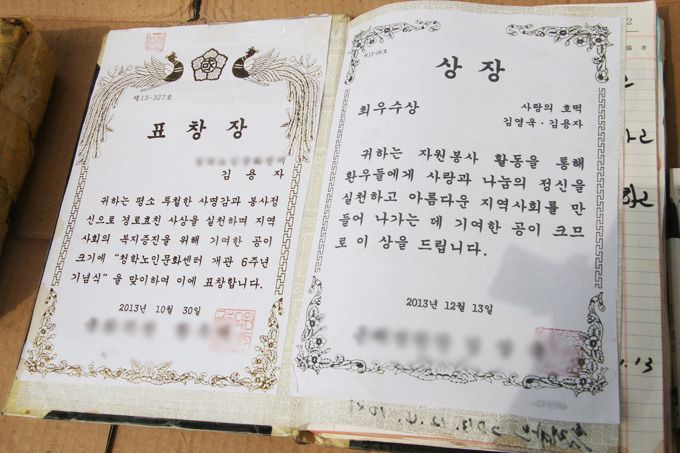 제13-327호
표창장
김용자
귀하는 평소 특철한 사명감과 봉사정
신으로 경로효친 사상을 실천하며 지역
사회의 복지증진을 위해 기여한 공이
크기에 "청학노인문화센터 개관 6주년
기념식"을 맞이하여 이에 표창합니다.
2013년 10월 30일
제13-06호
상장
최우수상
사랑의 호떡
김영욱·김용자
귀하는 자원봉사 활동을 통해
환우들에게 사랑과 나눔의 정신을
실천하고 아름다운 지역사회를 만
들어 나가는 데 기여한 공이 크므
로 이 상을 드립니다.
2013년 12월 13일